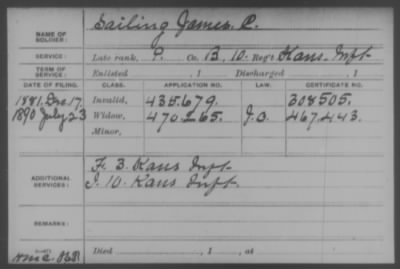 NAME OF SOLDIER: Sailing James. C.
SERVICE: Late rank, P. Co. B, 10. Reg't Kans. Inft
TERM OF SERVICE: Enlisted , 1 Discharged , 1
DATE OF FILING. CLASS. APPLICATION NO. LAW. CERTIFICATE NO.
1881. Dec. 17. Invalid, 435.679. 308505.
1890 July 23 Widow, 470265. 467.443.
Minor,
ADDITIONAL SERVICES: F. 3. Kans Inft
I. 10. Kans Inft.
REMARKS:
Died , 1 , at